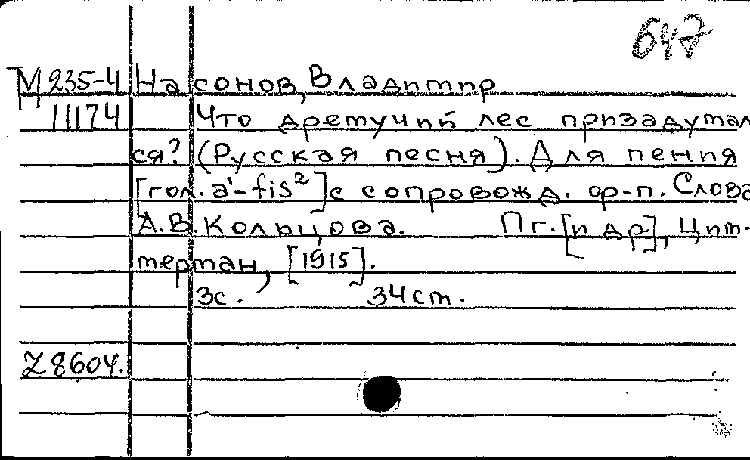 647
М 235-4 Насонов, Владимир
11174 Что дремучий лес призадумал
ся? (Русская песня). Для пения
[гол. a'-fis²] с сопровожд. ор-п. Слова
А.В. Кольцова. Пг. [и др], Цим-
мерман, [1915].
3с. 34 см.
Z 8604.